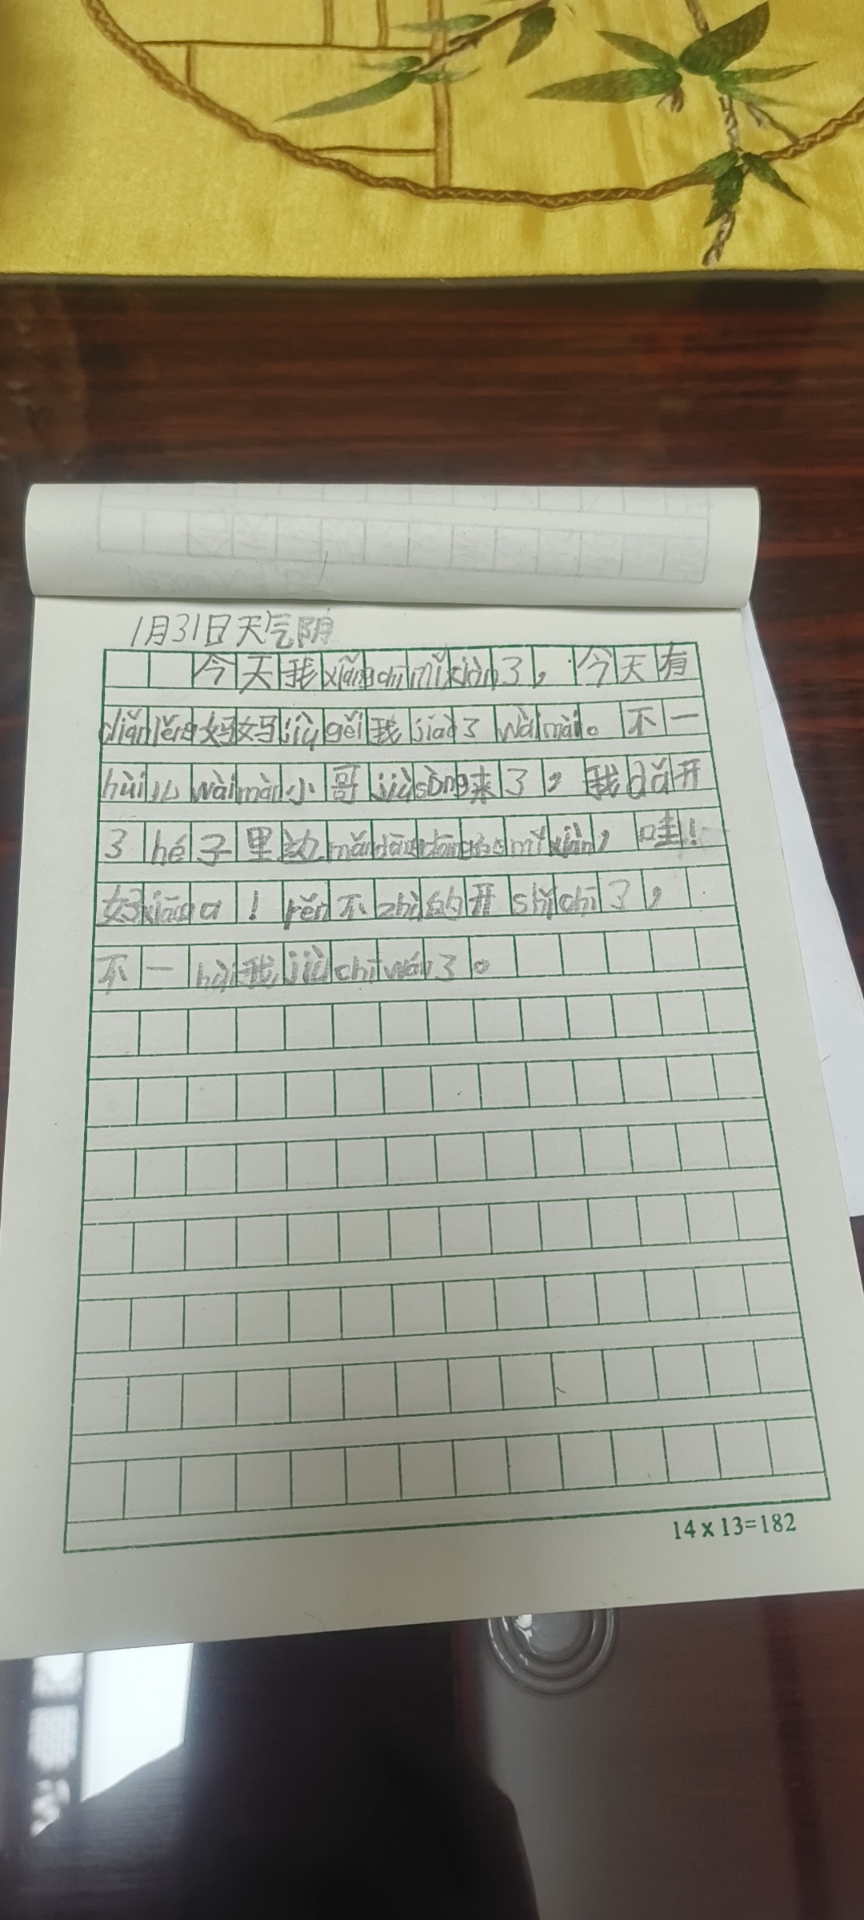 1月31日天气阴
今天我xiǎng chī mǐ xiàn了，今天有
diǎn lěng妈妈jiù gěi我jiào了wài mài。不一
huì儿wài mài小哥jiù sòng来了，我dǎ开
了hé子里边mǎn dāng dāng的mǐ xiàn，哇！
好xiāng a！rěn不zhù的开shǐ chī了，
不一huì我jiù chī wán了。
14×13=182